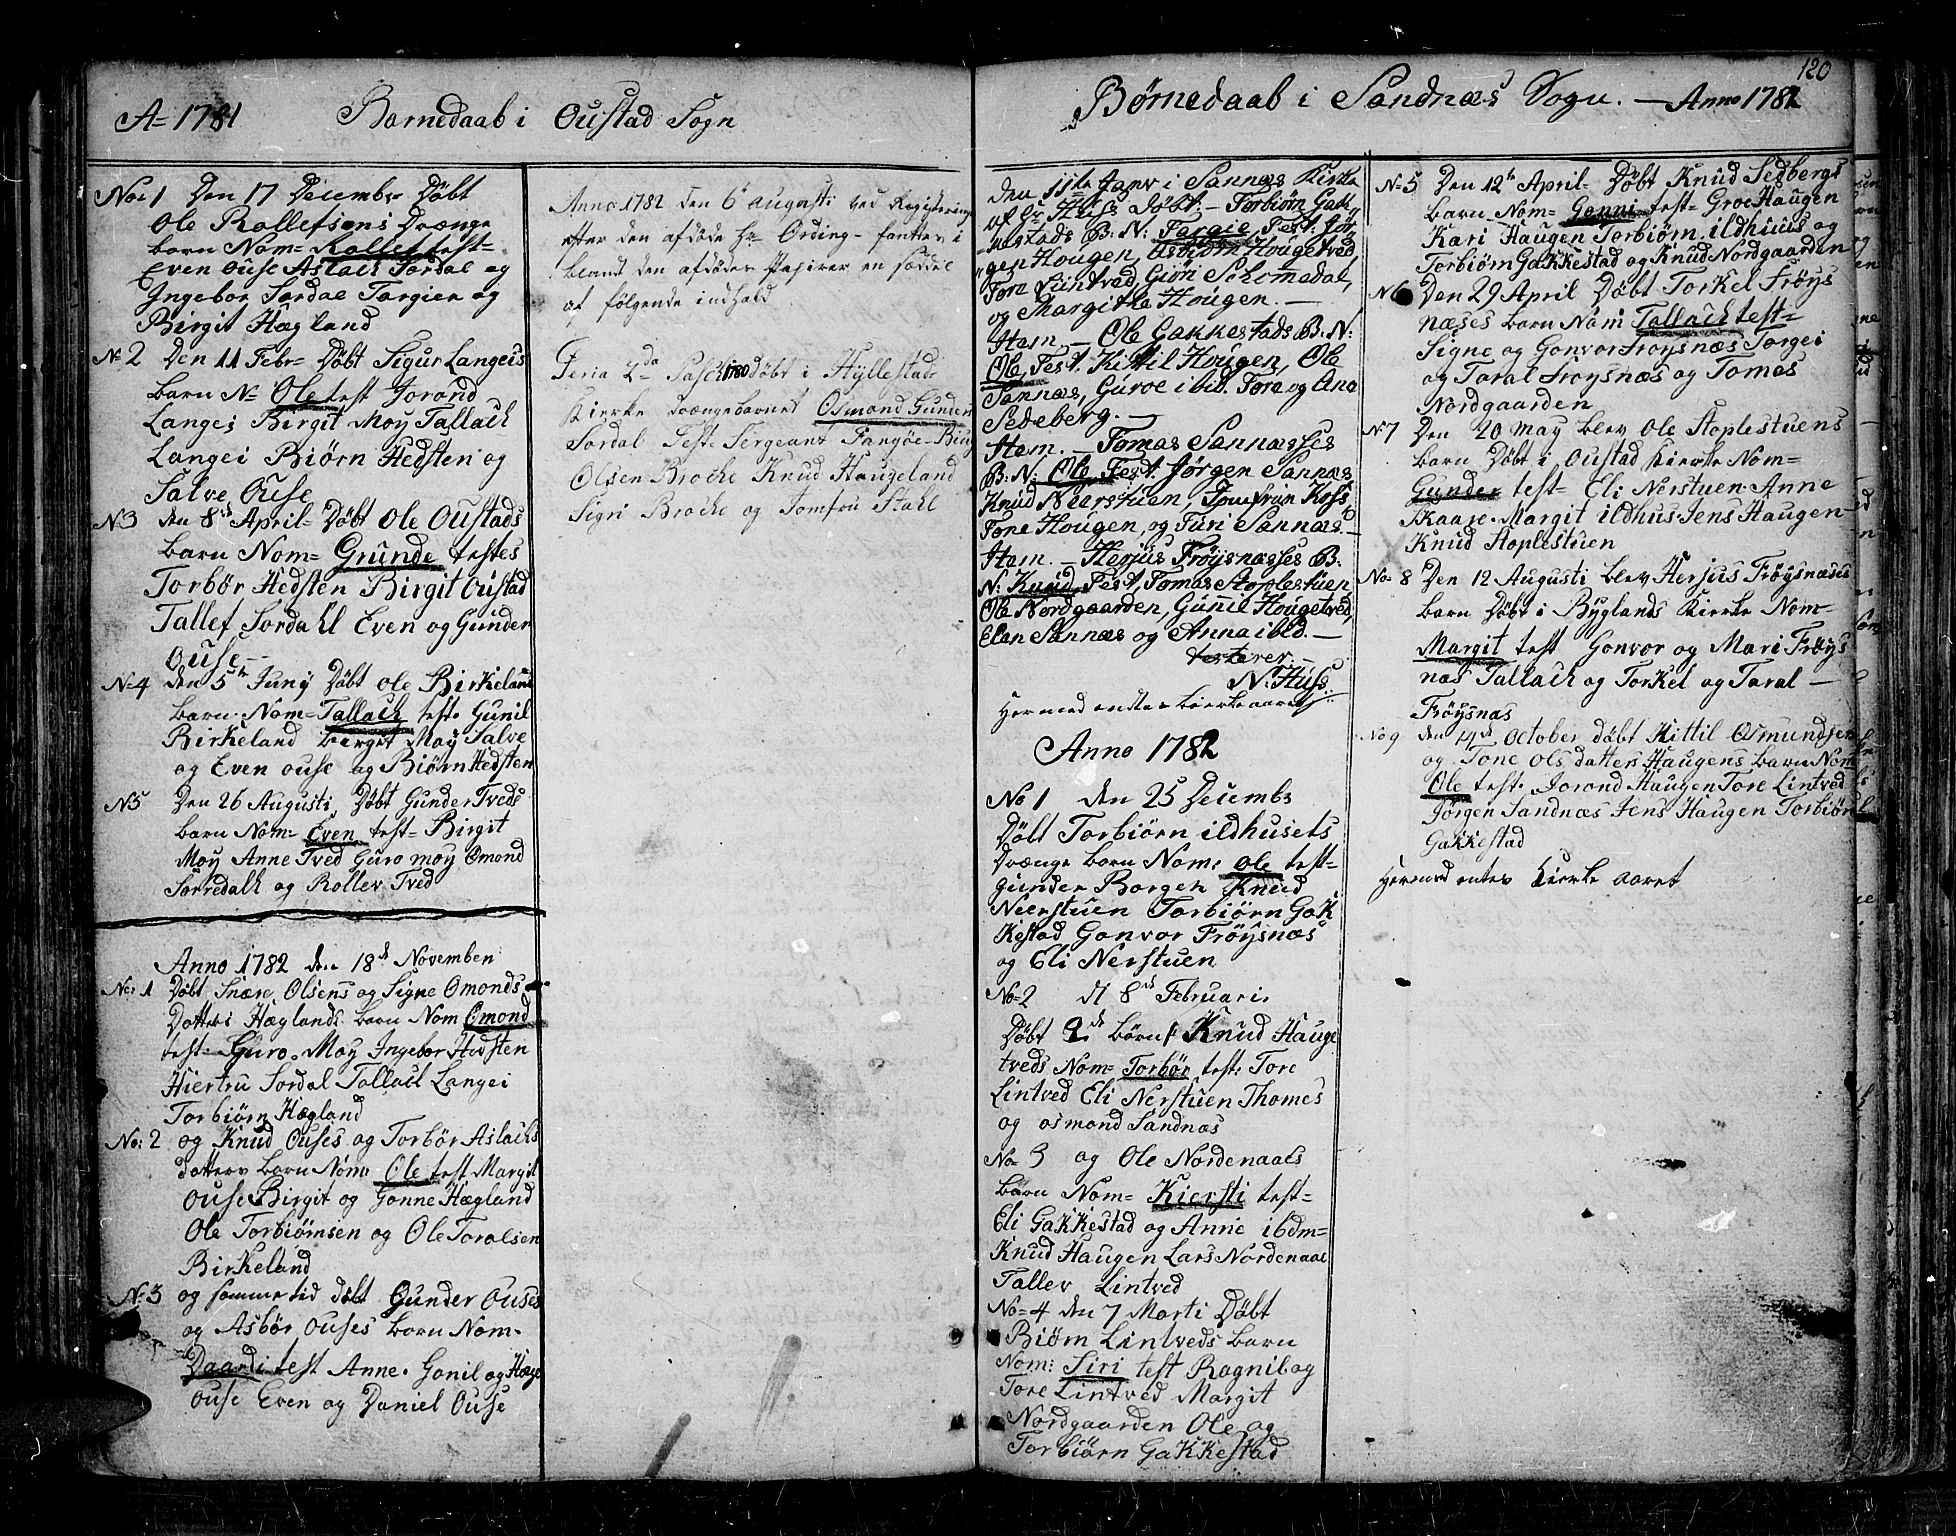 A= 1781 Barnedaab i Oustad Sogn
No: 1 Den 17 Decembr Døbt
Ole Rollefsens Drænge
barn Nom= Rollef test=
Even Ouse Aslach Sordal og
Ingebor Sordal Targier og
Birgit Hægland
N: 2 Den 11 Febr= Døbt Sigur Langeis
Barn N= Ole test Jorand
Langei Birgit Moy Tallach
Langei Biørn Hedsten og
Salve Ouse
N3 den 8de April= Døbt Ole Oustads
barn Nom= Grunde testes
Torbør Hedsten Birgit Oustad
Tallef Sordahl Even og Gunder
Ouse
N=4 den 5te Juny Døbt Ole Birkeland
barn. Nom= Tallach test. Gunil
Birkeland Berget Moy Salve
og Even Ouse og Biørn Hedsten
N5 Den 26 Augusti, Døbt Gunder Tveds
barn Nom= Even test= Birgit
Moy Anne Tved Guro moy Omond
Sørredalh og Rollev Tved
Anno 1782 den 18de November
No: 1 Døbt Snære Olsens og Signe Omonds
Dotters Hæglands barn Nom Omond
test= Guro. Moy Ingebor Hedsten
Hiertru Sordal Tallach Langei
Torbiørn Hægland
No: 2 og Knud Ouses og Torbør Aslachs
dotters barn Nom: Ole test Margit
Ouse Birgit og Gonne Hægland
Ole Torbiørnsen og Ole Toralsen
Birkeland
N:3 og samme tid døbt Gunder Ouses
og Asbør Ouses barn Nom=
Daardi test Anne. Gonil og Hæge
Ouse Even og Daniel Ouse
Anno 1782 den 6 augusti ved Registering
efter den afdøde Hr Ording- fantes i
blandt den afdødes Papirer en seddel
af følgende indhold
Feria 2da Pasch 1780 Døbt i Hyllestad
Kierke drængebarnet Osmond Gunders
Sordal Test. Sergeant Fangøe- Biug
Olsen Brocke Knud Haugeland
Sigri Brocke og Jomfru Stahl
120
Børnedaab i Sandnæs Sogn. — Anno 1782
den 11te Janv i Sannæs Kirke
af Hr Huss Døbt: - Torbiørn Gak-
kestads B: N: Targie, Test: Jør-
gen Hougen, Osbiørn Hougetved,
Tore Lintved, Giøri Schomedal,
og Margithe Hougen. —
Item. — Ole Gakkestads B: N:
Ole, Test. Kittil Hougen, Ole
Sannæs, Guroe ibid. Tore og Ana
Sedeberg. —
Item. — Tomas Sannæsses
B: N: Ole Test. Jørgen Sannæs,
Knud Neerstuen, Jomfrun Koss,
Tore Hougen, og Turi Sannæs. —
Item. — Herjus Frøysnæsses B:
N: Knud, Test, Tomas Stoplestuen,
Ole Nordgaarden, Gunnil Hougetved,
Elen Sannæs og Anna ibid. —
testerer. —
N: Huss.
Hermed endtes kierke aaret
Anno 1782
No 1 den 25 Decembr
Døbt Torbiørn ildhusets
Drænge barn Nom: Ole test=
Gunder Borgen Knud
Neerstuen Torbiørn Gak
Kestad Gonvor Frøysnæs
og Eli Nerstuen
No=2 d 8de Februari.
Døbt 2de børn/: Knud Hauge
tveds Nom= Torbør test: Tore
Lintved Eli Nerstuen Thomes
og osmond Sandnæs
No= 3 og Ole Nordenaaes
barn Nom= Kiersti test=
Eli Gakkestad og Anne ibdm=
Knud Haugen Lars Nordenaae
Tallev Lintved
No=4 den 7 Marti Døbt
Biørn Lintveds barn
Nom: Siri test Ragnil og
Tore Lintved Margit
Nordgaarden Ole og
Torbiørn Gakkestad
N=5 Den 12te April= Døbt Knud Sedbergs
barn Nom= Gonni test= Groe Haugen
Kari Haugen Torbiørn ildhuus og
Torbiørn Gakkestad og Knud Nordgaarden
N6 Den 29 April Døbt Torkel Frøys
næses barn Nom Tallach test=
Signe og Gonvor Frøysnæs Torgei
og Taral Frøysnæs og Tomes
Nordgaarden
N7 Den 20 May blev Ole Stoplestuens
barn Døbt i Oustad Kierke Nom=
Gunder test= Eli Nerstuen Anne
Skaare. Margit ildhus Jens Haugen
Knud Stoplestuen
No= 8 Den 12 Augusti blev Herjus Frøysnæses
barn Døbt i Byglands Kierke Nom=
Margit test Gonvor og Mari Frøys
næs Tallach og Torkel og Taral —
Frøysnæs
No 9 den 14de October døbt Kittil Osmundsen
og Tone Ols datters Haugens barn Nom
Ole test. Jorond Haugen Tore Lintved
Jørgen Sandnæs Jens Haugen Torbiørn
Gakkestad
Hermed entes Kierke aaret